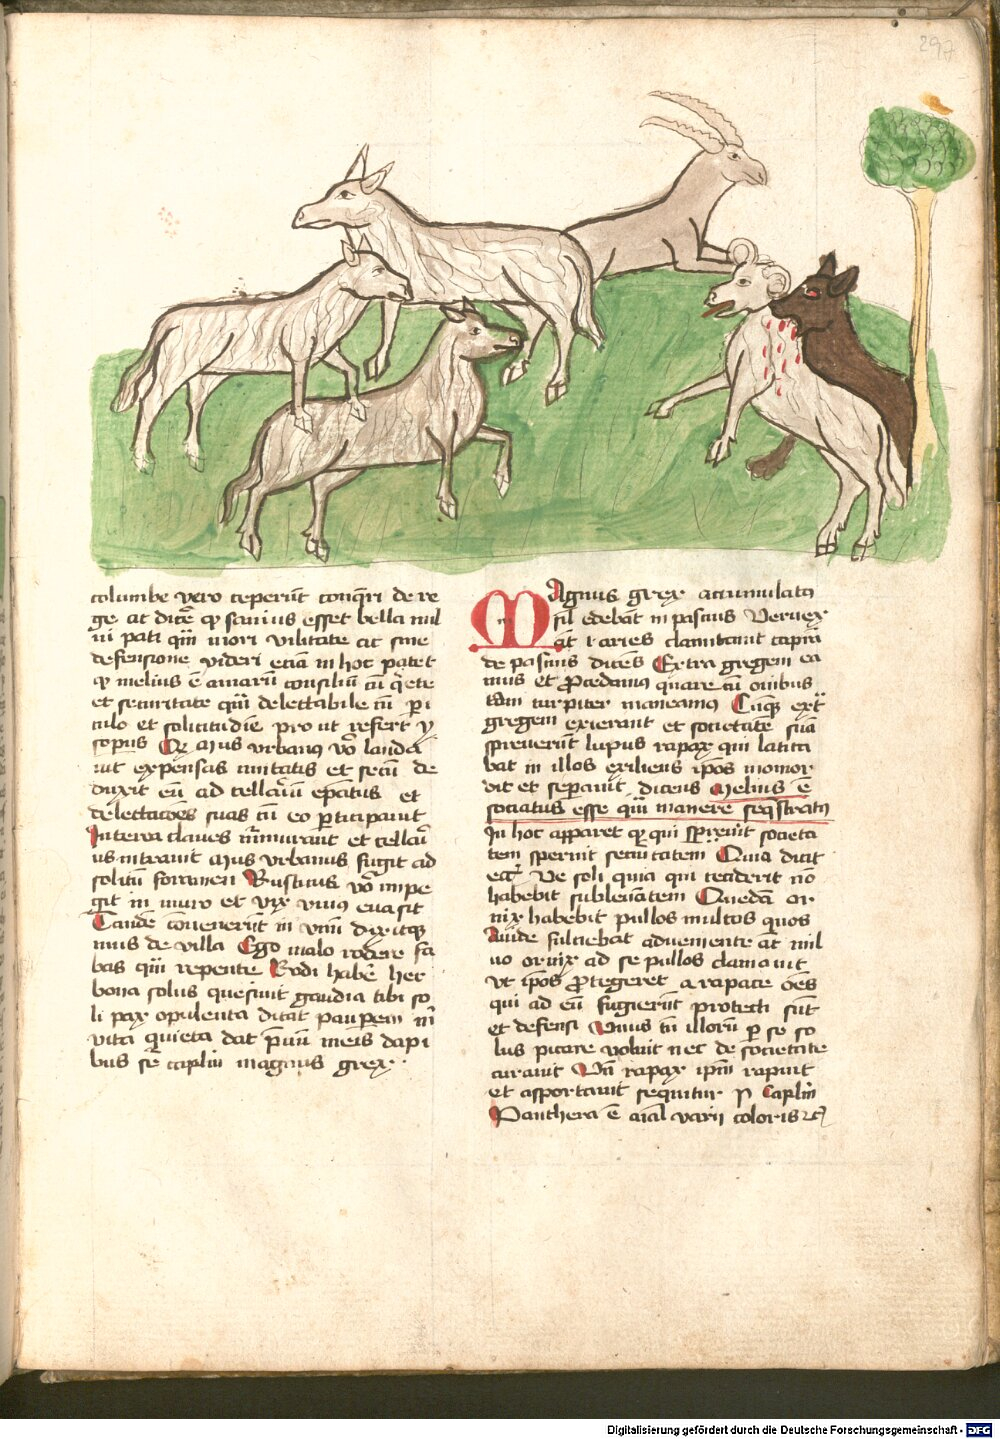 297
columbe vero ceperūt conq̄ri de re
ge at dicēt qͥ sanius esset bella mil
ui pati q̄m mori vilitate ac sine
defensione videri etiam in hoc patet
qͥ melius ē amarū consiliū cū q̄ete
et securitate q̄m delectabile cū pi
culo et solicitudīe pro ut refert y
sopus Qͥ Mus vrbanus vō landa
expensas ciuitatis et secū de
duxit eū ad cellariū epatus et
delectacōes suas cū eo participauit
Interea claues murmurant et cellari
us intrauit Mus vrbanus fugit ad
solitū foramen Rusticus vō impe
git in muro et vix viuus euasit
Tandē conuenerūt in vnū dixitqꝫ
mus de villa Ego malo rodere fa
bas q̄m repente Rodi habē hec
bona solus que sunt gaudia tibi so
li pax opulenta ditat paupem
vita quieta dat meis dapi
bus seq̄ caplm̄ magnus grex
Magnus grex accumulatꝰ
sīl edebāt in pascuis Veruex
at r aries clamitauit capͣm
de pascuis dicēs Extra gregem ea
mus et Procedamꝰ quare cū ouibus
tam turpiter maneamꝰ Cūqꝫ exᵗ
gregem exierant et societatē suā
spreuerūt lupus rapax qui latita
bat in illos exiliens ipōs momor
dit et separauit dicens Melius ē
sociatus esse q̄m manere seq̄stratꝰ
In hoc apparet qͥ qui spreuit societa
tem spernit securitatem Quia dicit
ecc̄ Ve soli quia qui ceciderit nō
habebit subleuātem Quedā or
nix habebit pullos multos quos
Auide fulciebat adueniente āt mil
uo ornix ad se pullos clamauit
vt ipōs Protegeret a rapace oēs
qui ad eū fugierūt protecti sūt
et defensi Vnus tn̄ illorū p se so
lus picare voluit nec de societate
curauit Vn̄ rapax ipm̄ rapuit
et asportauit sequitur Caplm̄
Panthera ē aīal varii coloris ⁊c̄
Digitalisierung gefördert durch die Deutsche Forschungsgemeinschaft - DFG